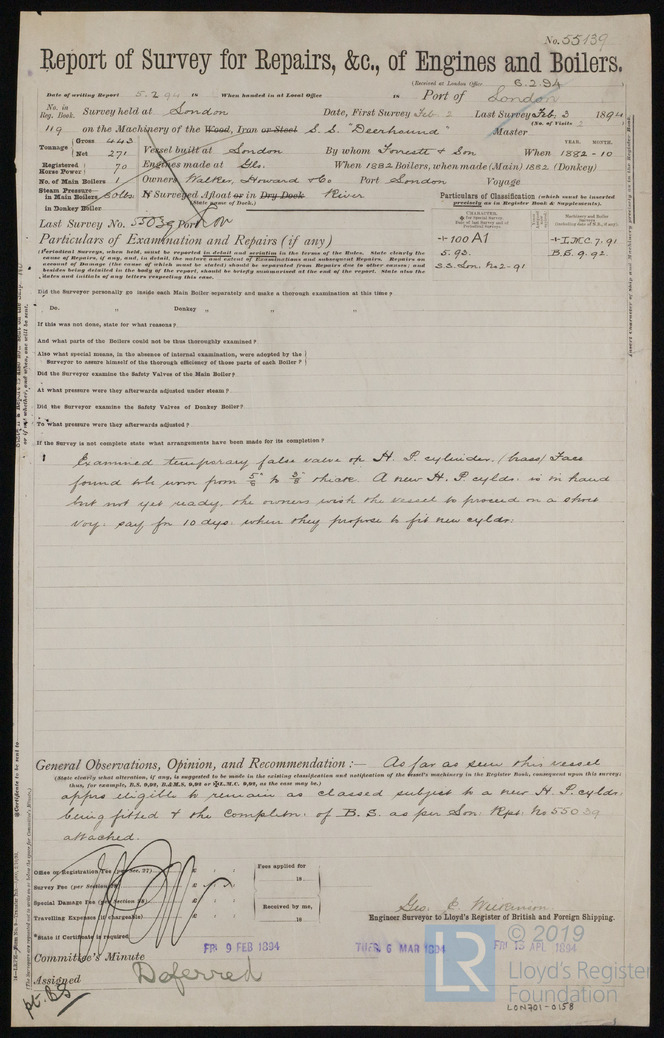 No. 55139
Report of Survey for Repairs, &c., of Engines and Boilers.
(Received at London Office 6.2.94
Date of writing Report 5.2.94 18 When handed in at Local Office 18 Port of London
No. in Reg. Book. Survey held at London Date, First Survey Feb 2 Last Survey Feb. 3 1894
(No. of Visits 2
119 on the Machinery of the Wood, Iron or Steel S.S. "Deerhound" Master
Tonnage Gross 443 Net 271 Vessel built at London By whom Forrestt & Son When 1882-10
YEAR. MONTH.
Registered Horse Power 70 Engines made at Glo. When 1882 Boilers, when made (Main) 1882 (Donkey)
No. of Main Boilers 1 Owners Walker, Howard & Co Port London Voyage
Steam Pressure in Main Boilers 80lbs If Surveyed Afloat or in Dry Dock River
in Donkey Boiler (State name of Dock.)
Particulars of Classification (which must be inserted
precisely as in Register Book & Supplements).
Last Survey No. 55039 Port Lon
+100A1
5.93.
S.S. Lon. No2-91
+L.M.C. 7.91
B.S. 9.92.
Particulars of Examination and Repairs (if any)
(Periodical Surveys, when held, must be reported in detail and seriatim in the terms of the Rules. State clearly the
cause of Repairs, if any, and, in detail, the nature and extent of Examinations and subsequent Repairs. Repairs on
account of Damage (the cause of which must be stated) should be separated from Repairs due to other causes; and
besides being detailed in the body of the report, should be briefly summarised at the end of the report. State also the
dates and initials of any letters respecting this case.
Did the Surveyor personally go inside each Main Boiler separately and make a thorough examination at this time?
Do. " Donkey " " "
If this was not done, state for what reasons?
And what parts of the Boilers could not be thus thoroughly examined?
Also what special means, in the absence of internal examination, were adopted by the
Surveyor to assure himself of the thorough efficiency of those parts of each Boiler?
Did the Surveyor examine the Safety Valves of the Main Boiler?
At what pressure were they afterwards adjusted under steam?
Did the Surveyor examine the Safety Valves of Donkey Boiler?
To what pressure were they afterwards adjusted?
If the Survey is not complete state what arrangements have been made for its completion?
Examined temporary false valve of H. P. cylinder (brass) Face
found to be worn from 5/8" to 3/8" thick. A new H. P. cyldr. is in hand
but not yet ready, the owners wish the vessel to proceed on a short
voy: say for 10 dys. when they propose to fit new cyldr:
General Observations, Opinion, and Recommendation:— As far as seen this vessel
(State clearly what alteration, if any, is suggested to be made in the existing classification and notification of the vessel's machinery in the Register Book, consequent upon this survey;
thus, for example, B.S. 9,91, B&M.S. 9,91 or +L.M.C. 9,91, as the case may be.)
apprs eligible to remain as classed subject to a new H. P. cyldr.
being fitted & the completn: of B. S. as per Lon: Rpt: No 55039
attached.
Office or Registration Fee (per Sec. 27) £
Survey Fee (per Section 28) £
Special Damage Fee (per Section 28) £
Travelling Expenses (if chargeable) £
Fees applied for
18
Received by me,
18
Geo. C. Wilkinson
Engineer Surveyor to Lloyd's Register of British and Foreign Shipping.
*State if Certificate is required
Committee's Minute FRI 9 FEB 1894 TUES 6 MAR 1894 FRI 13 APL 1894
Assigned Deferred
pt. BS
© 2019
LR Lloyd's Register
Foundation
LON701-0158